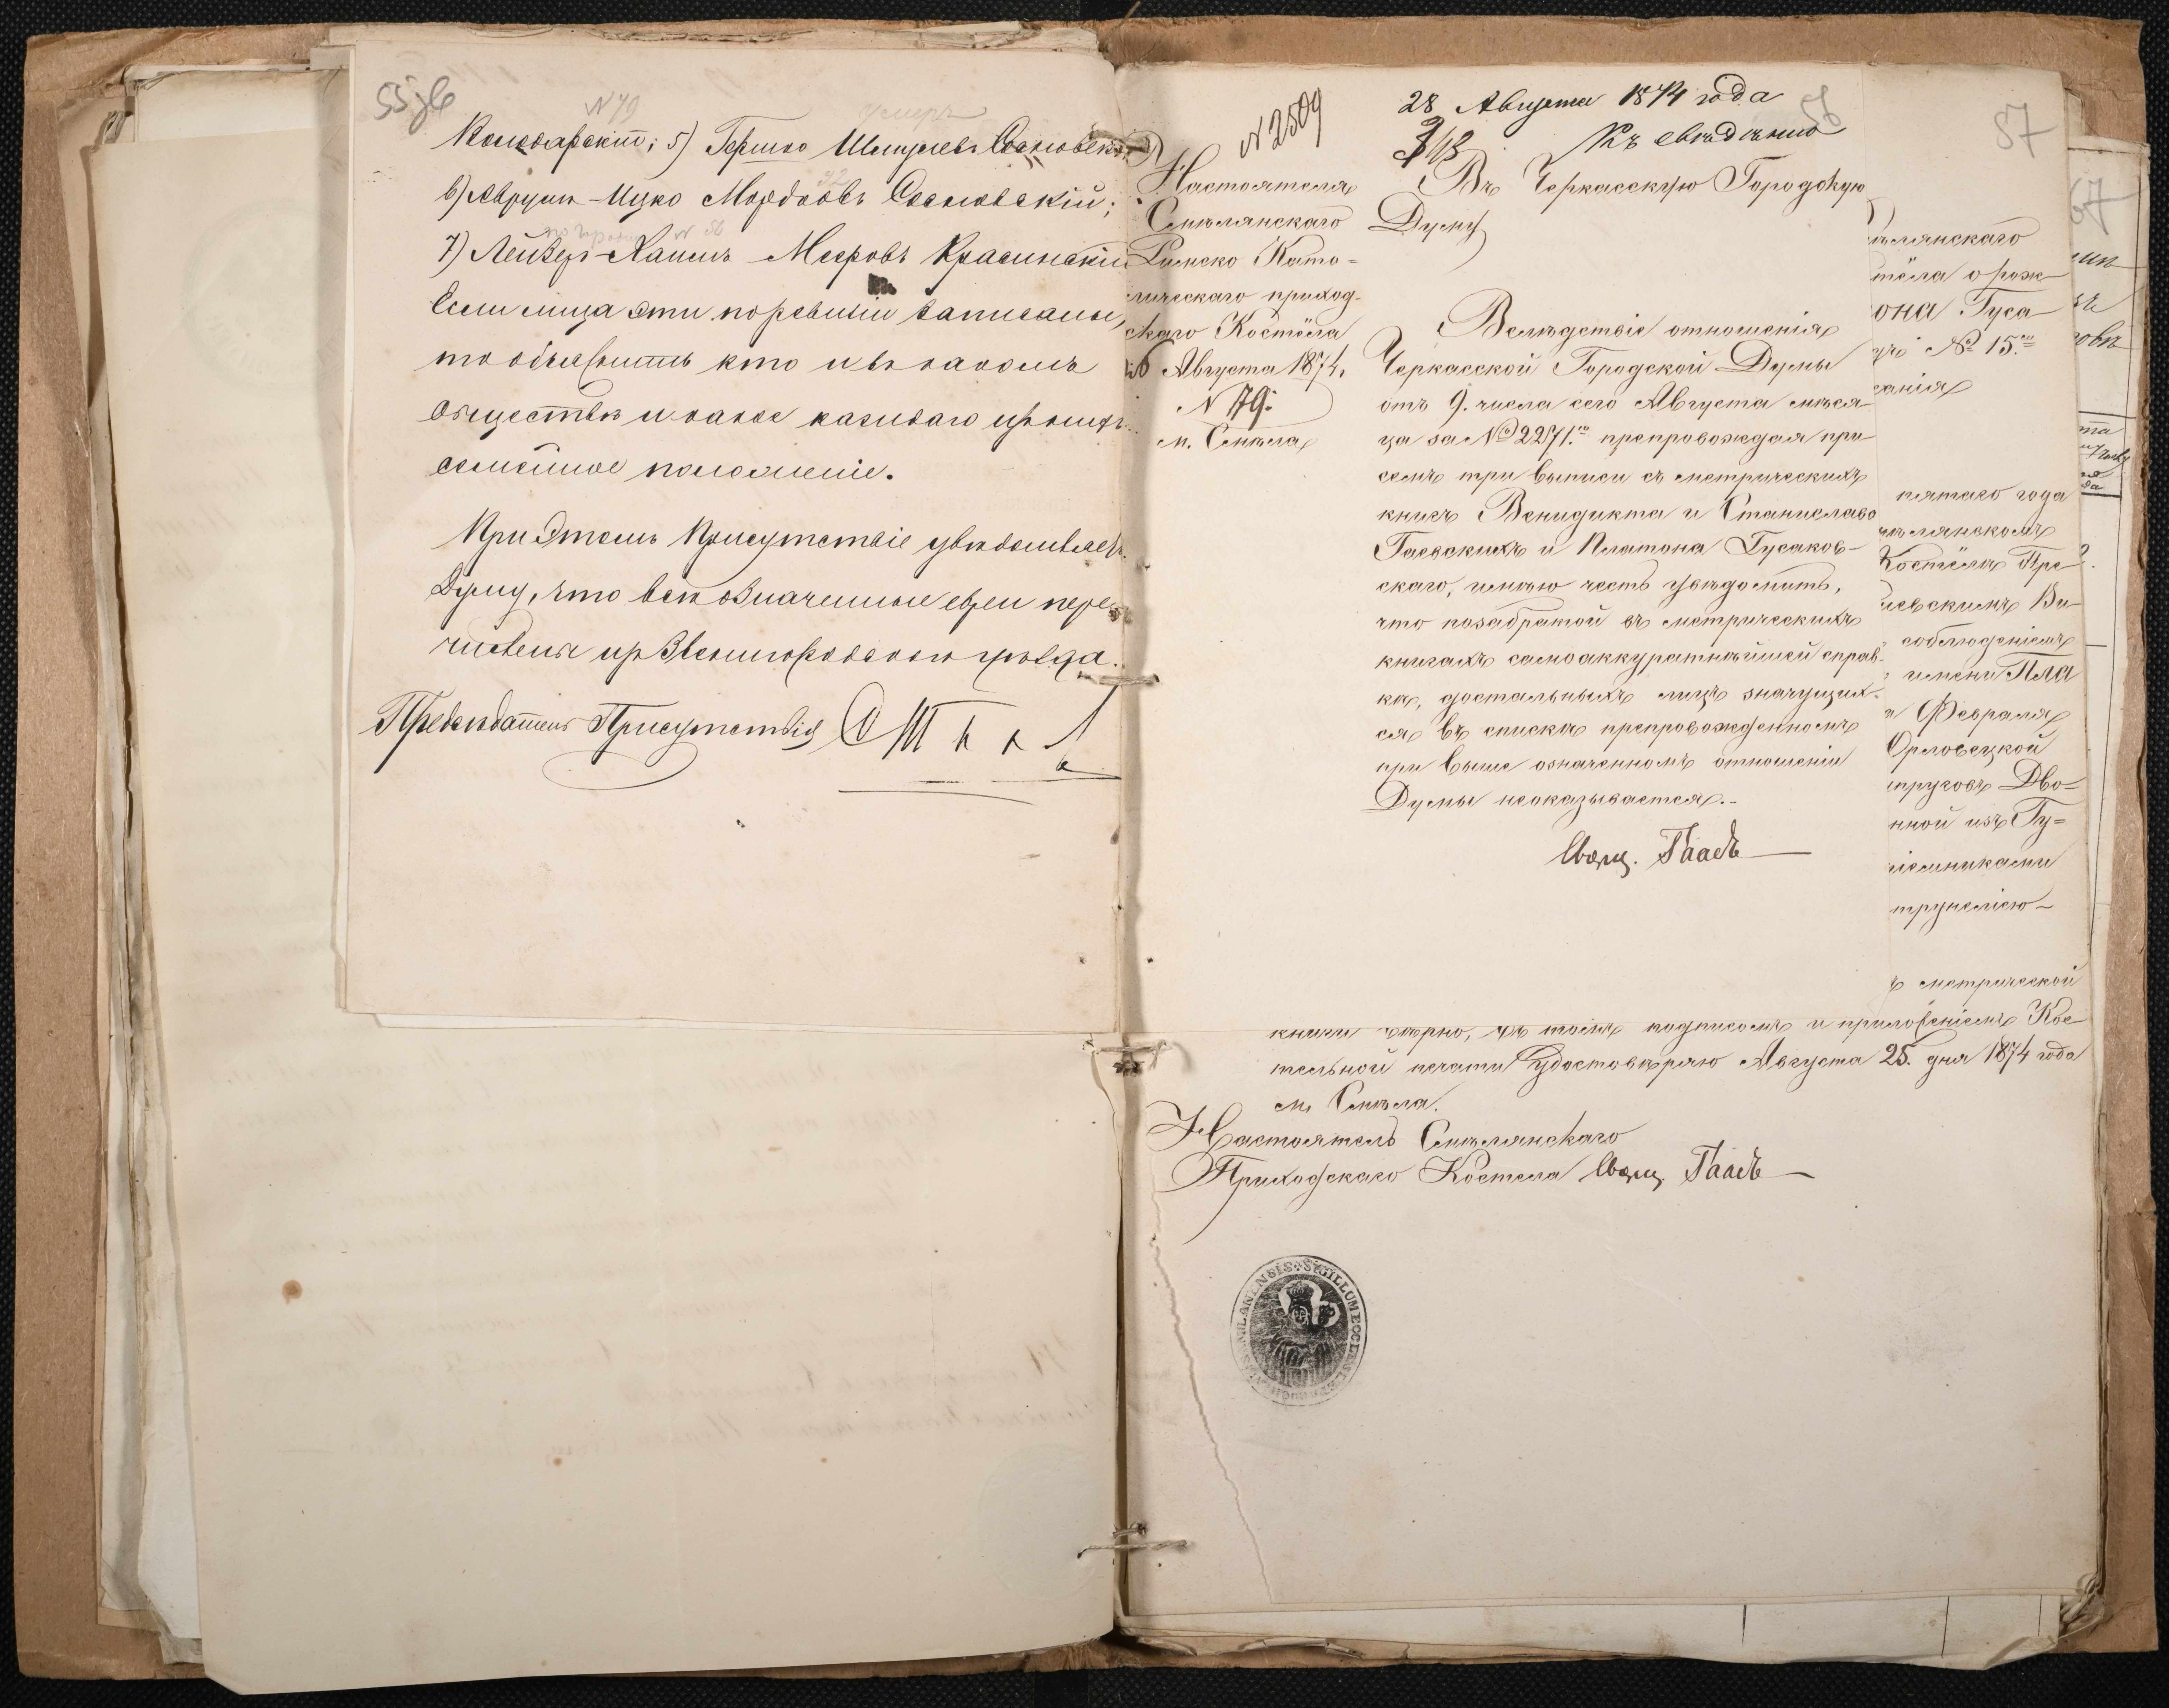 55 об
N 79
умеръ
Колодарскій; 5) Гершко Шмулевъ Сосновскій
6) Аврумъ-Ицко Мордковъ Сосновскій;
N 56
7) Лейзеръ-Хаимъ Мееровъ Красинскій
Если лица эти по ревизіи записаны,
то объяснить кто и въ какомъ
обществѣ и какое каждаго изъ нихъ
семейное положеніе.
При этомъ Присутствіе увѣдомляетъ
Думу, что всѣ означенные евреи пере
числены изъ Звенигородскаго уѣзда.
Предсѣдатель Присутствія
N 2509
Настоятеля
Смѣлянскаго
Римско Като-
лическаго приход-
скаго Костёла
Августа 1874.
N 79.
м. Смѣла
28 Августа 1874 года
56
Къ свѣдѣнію
Въ Черкасскую Городскую
Думу
Вслѣдствіе отношенія
Черкасской Городской Думы
отъ 9. числа сего Августа мѣся
ца за № 2271. препровождая при
семъ три выписи съ метрическихъ
книгъ Венидикта и Станислава
Гаевскихъ и Платона Гусаков-
скаго, имѣю честь увѣдомить,
что позабратой въ метрическихъ
книгахъ самоаккуратнѣйшей справ-
кѣ, достальныхъ лицъ значущих-
ся въ спискѣ препровожденномъ
при выше означенномъ отношеніи
Думы неоказывается.
Свящ. Гаасъ
57
ѣлянскаго
тёла о рож
она Гуса
№ 15.
санія
пятаго года
ѣлянскомъ
Костёлѣ Пре
іевскимъ Ви
соблюденіемъ
имени Пла
Февраля
Орловецкой
пруговъ Дво-
нной изъ Гу-
ріемниками
трунелісю-
ъ метрической
книги вѣрно, въ томъ подписомъ и приложеніемъ Кос
тельной печати удостовѣряю Августа 25. дня 1874 года
м. Смѣла.
Настоятель Смѣлянскаго
Приходскаго Костела Свящ. Гаасъ
67